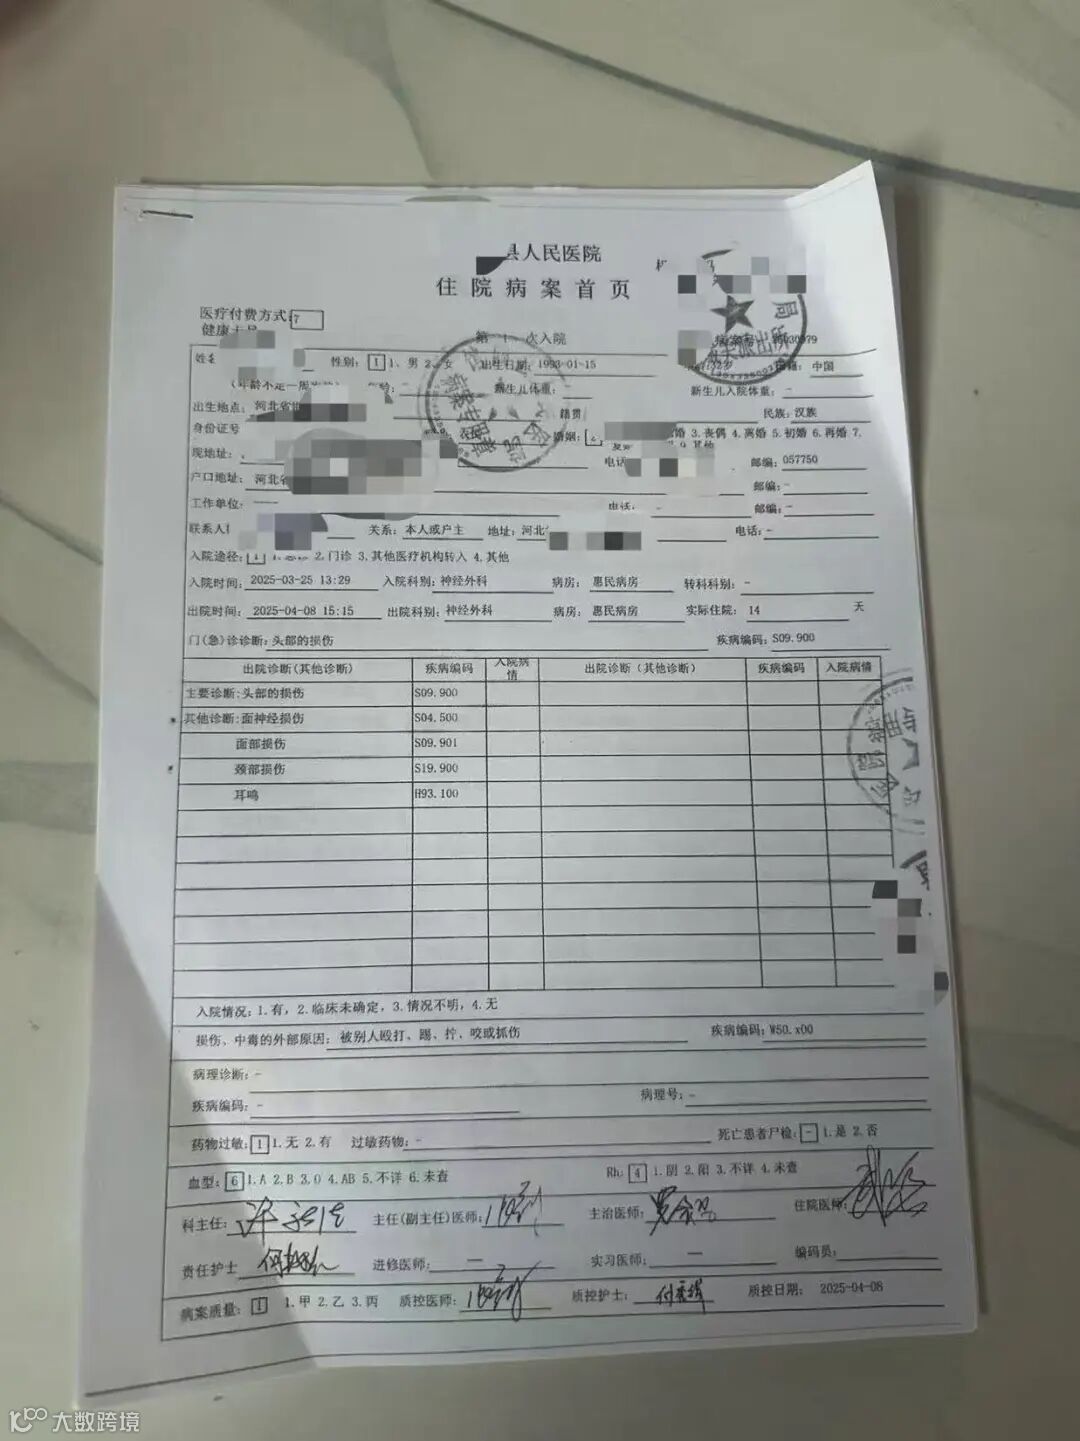 县人民医院
住院病案首页
医疗付费方式: 7
健康卡号
第 1 次入院 病案号:
姓名 性别: 1 1、男 2、女 出生日期: 1993-01-15 国籍: 中国
(年龄不足一周岁的) 年龄: 新生儿体重: 新生儿入院体重: -
出生地点: 河北省 籍贯 民族: 汉族
身份证号 婚姻: 婚 3.丧偶 4.离婚 5.初婚 6.再婚 7.
9.其他
现地址: 电话 邮编: 057750
户口地址: 河北省 邮编: -
工作单位: 电话: - 邮编: -
联系人 关系: 本人或户主 地址: 河北 电话: -
入院途径: 1 1.急诊 2.门诊 3.其他医疗机构转入 4.其他
入院时间: 2025-03-25 13:29 入院科别: 神经外科 病房: 惠民病房 转科科别: -
出院时间: 2025-04-08 15:15 出院科别: 神经外科 病房: 惠民病房 实际住院: 14 天
门(急)诊诊断: 头部的损伤 疾病编码: S09.900
出院诊断(其他诊断) 疾病编码 入院病情 出院诊断(其他诊断) 疾病编码 入院病情
主要诊断:头部的损伤 S09.900
其他诊断:面神经损伤 S04.500
面部损伤 S09.901
颈部损伤 S19.900
耳鸣 H93.100
入院情况: 1.有, 2.临床未确定, 3.情况不明, 4.无
损伤、中毒的外部原因: 被别人殴打、踢、拧、咬或抓伤 疾病编码: W50.x00
病理诊断: -
疾病编码: - 病理号: -
药物过敏: 1 1.无 2.有 过敏药物: - 死亡患者尸检: - 1.是 2.否
血型: 6 1.A 2.B 3.O 4.AB 5.不详 6.未查 Rh: 4 1.阴 2.阳 3.不详 4.未查
科主任: 主任(副主任)医师: 主治医师: 住院医师:
责任护士 进修医师: — 实习医师: — 编码员:
病案质量: 1 1.甲 2.乙 3.丙 质控医师: 质控护士: 质控日期: 2025-04-08
大数跨境